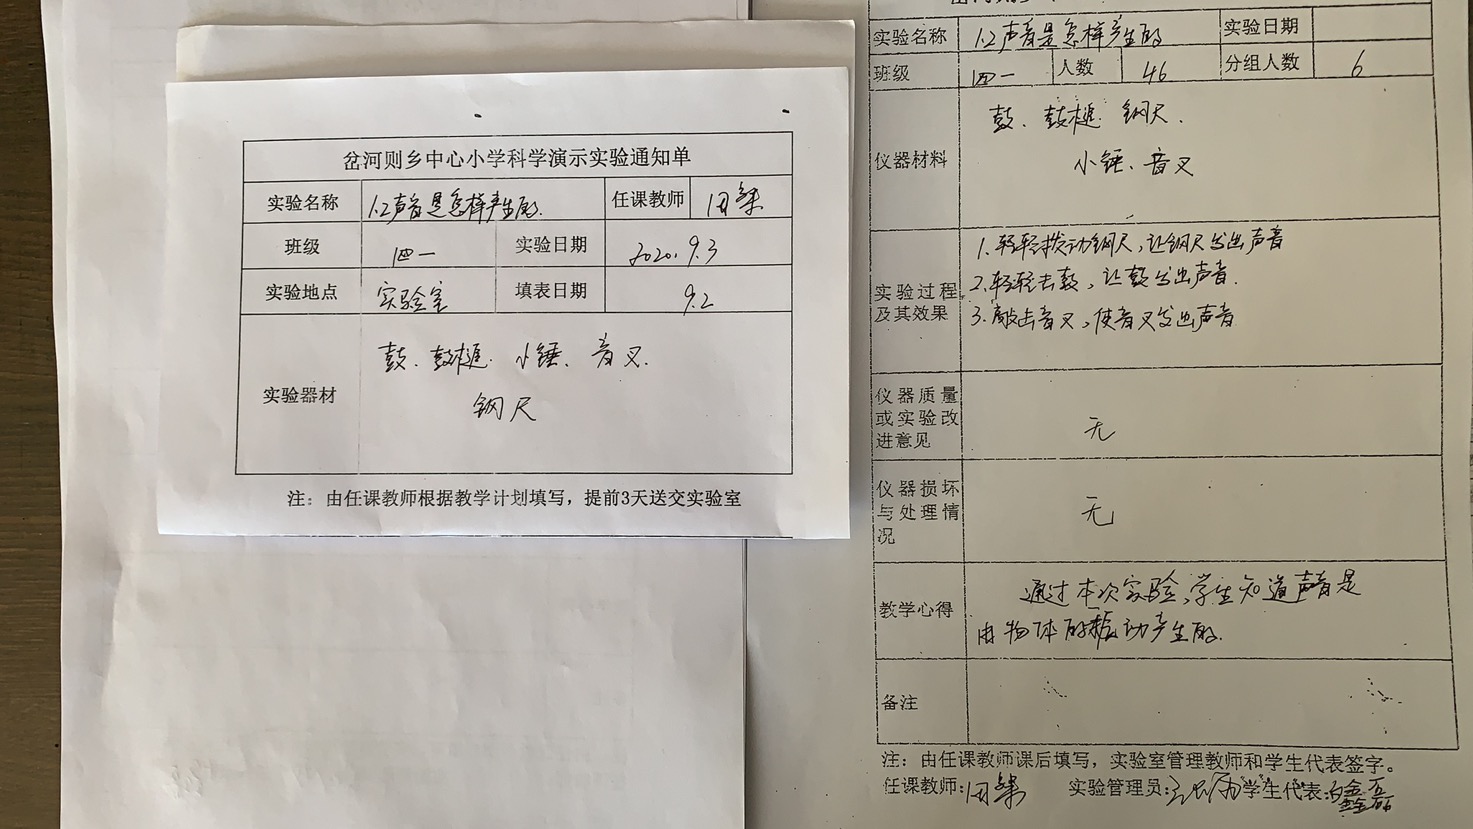 岔河则乡中心小学科学演示实验通知单
实验名称 1.2声音是怎样产生的. 任课教师
班级 四一 实验日期 2020.9.3
实验地点 实验室 填表日期 9.2
实验器材
鼓、鼓槌. 小锤、音叉.
钢尺
注：由任课教师根据教学计划填写，提前3天送交实验室
实验名称 1.2声音是怎样产生的 实验日期
班级 四一 人数 46 分组人数 6
仪器材料
鼓、鼓槌 钢尺.
小锤、音叉
实验过程及其效果
1.轻轻拨动钢尺,让钢尺发出声音
2.轻轻击鼓,让鼓发出声音.
3.敲击音叉,使音叉发出声音
仪器质量
或实验改
进意见
无
仪器损坏
与处理情
况
无
教学心得
通过本次实验,学生知道声音是
由物体的振动产生的.
备注
注：由任课教师课后填写，实验室管理教师和学生代表签字。
任课教师: 实验管理员: 学生代表: